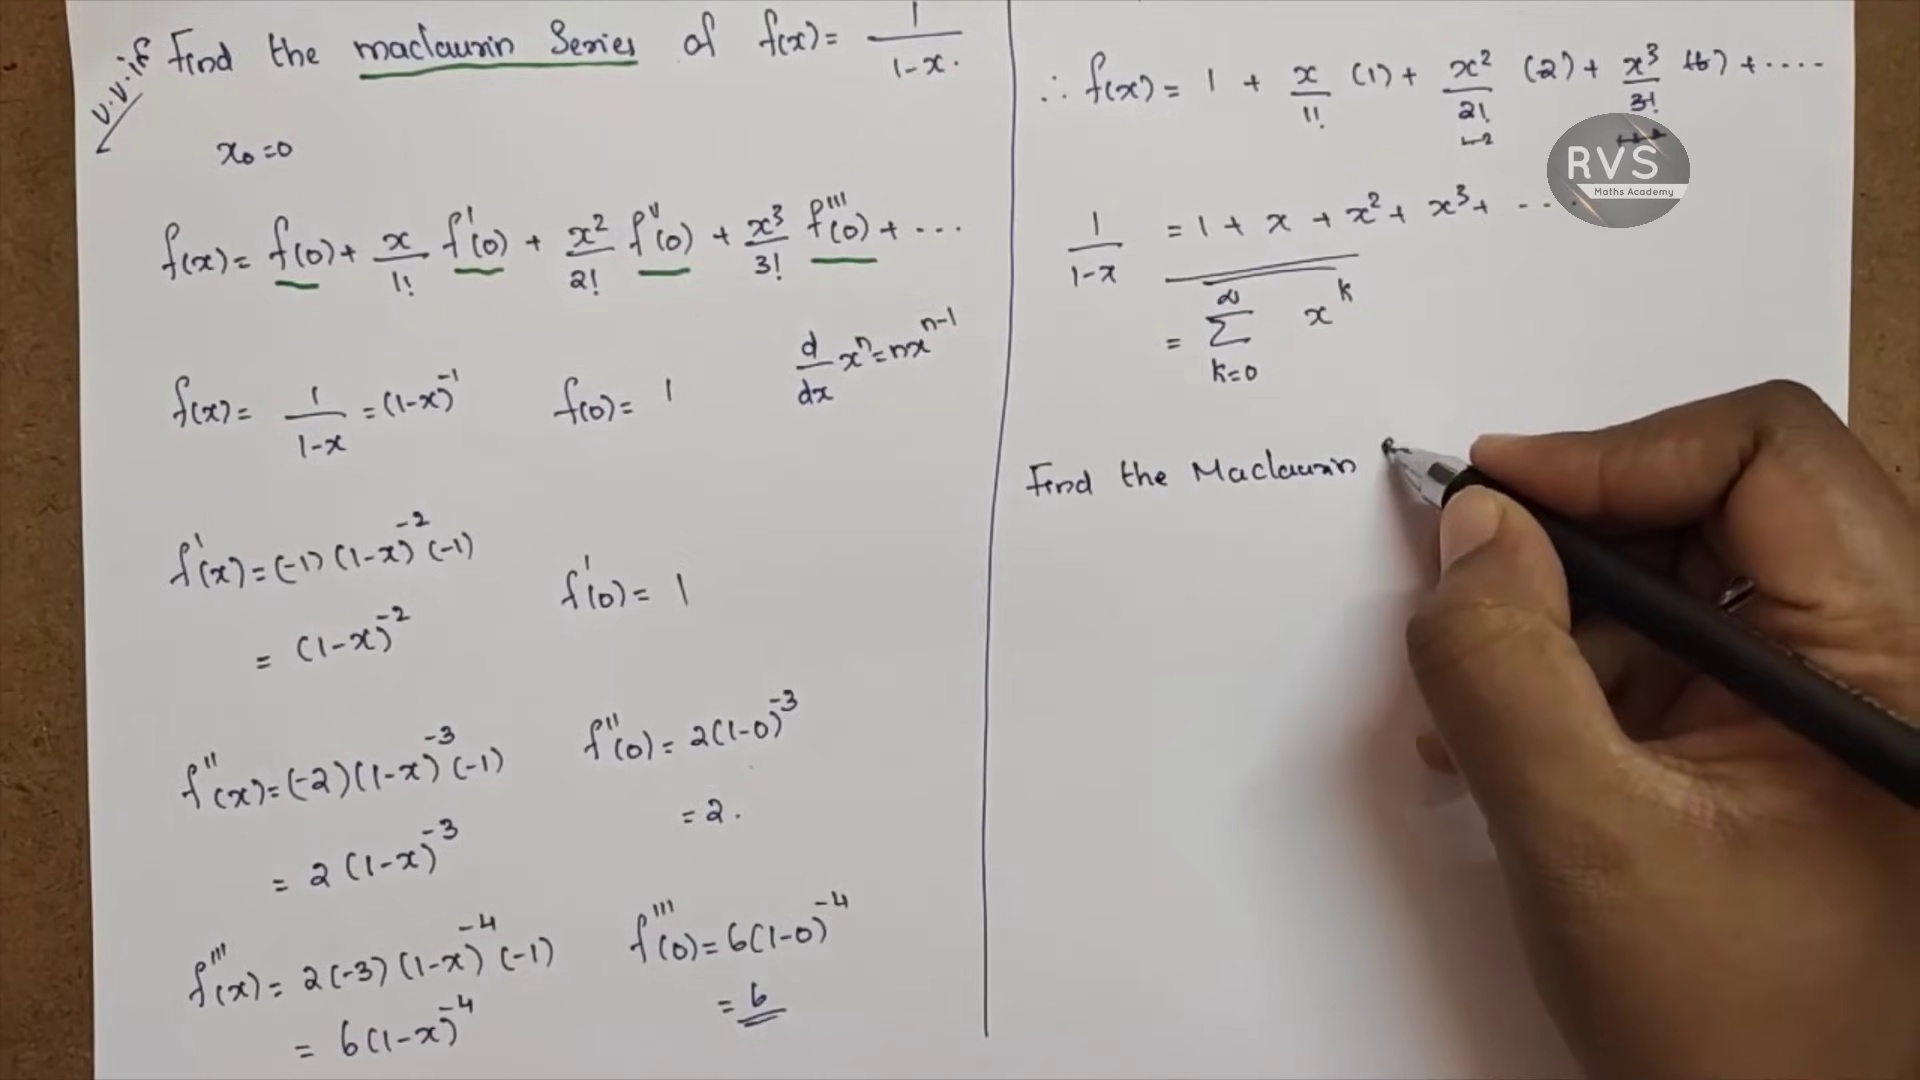 v.v.if Find the maclaurin Series of f(x) = 1/1-x.
x₀ = 0
f(x) = f(0) + x/1! f'(0) + x²/2! f''(0) + x³/3! f'''(0) + ...
f(x) = 1/1-x = (1-x)⁻¹ f(0) = 1 d/dx xⁿ = nxⁿ⁻¹
f'(x) = (-1) (1-x)⁻² (-1) f'(0) = 1
= (1-x)⁻²
f''(x) = (-2) (1-x)⁻³ (-1) f''(0) = 2(1-0)⁻³
= 2 (1-x)⁻³ = 2.
f'''(x) = 2(-3) (1-x)⁻⁴ (-1) f'''(0) = 6(1-0)⁻⁴
= 6(1-x)⁻⁴ = 6
∴ f(x) = 1 + x/1! (1) + x²/2! (2) + x³/3! (6) + ....
RVS
Maths Academy
1/1-x = 1 + x + x² + x³ + ....
= ∞ Σ k=0 xᵏ
Find the Maclaurin